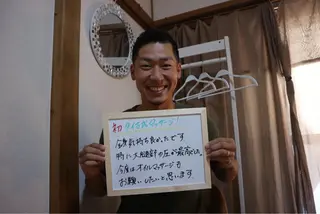 初 タイ古式マッサージ!
全身気持ち良かったです
特に大腿部の圧が最高でした。
今度はオイルマッサージも
お願いしたいと思います